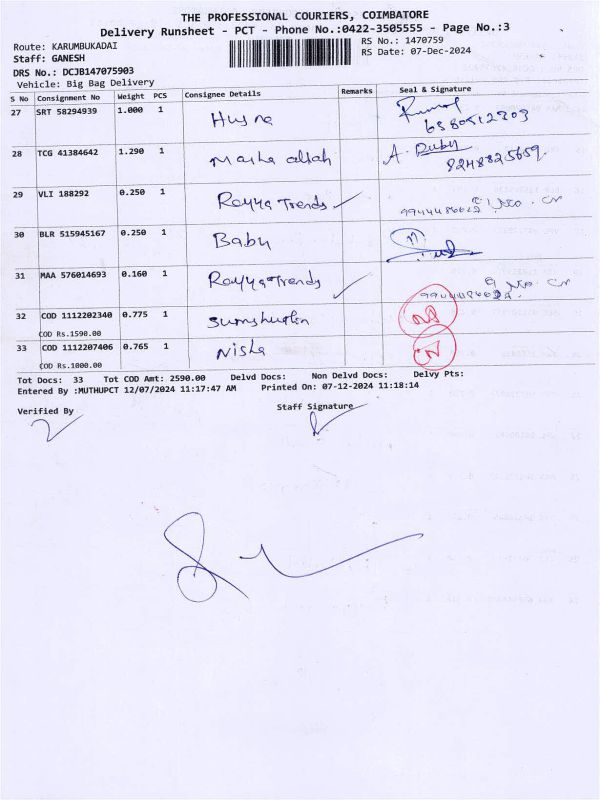 THE PROFESSIONAL COURIERS, COIMBATORE
Delivery Runsheet - PCT - Phone No.:0422-3505555 - Page No.:3
Route: KARUMBUKADAI RS No.: 1470759
Staff: GANESH RS Date: 07-Dec-2024
DRS No.: DCJB147075903
Vehicle: Big Bag Delivery
S No Consignment No Weight PCS Consignee Details Remarks Seal & Signature
27 SRT 58294939 1.000 1 Husna
6380512303
28 TCG 41384642 1.290 1 Masha allah A.
8248825659
29 VLI 188292 0.250 1 Rayya Trends
30 BLR 515945167 0.250 1 Babu
31 MAA 576014693 0.160 1 Rayya Trends
32 COD 1112202340 0.775 1
COD Rs.1590.00
33 COD 1112207406 0.765 1 Nisha
COD Rs.1000.00
Tot Docs: 33 Tot COD Amt: 2590.00 Delvd Docs: Non Delvd Docs: Delvy Pts:
Entered By :MUTHUPCT 12/07/2024 11:17:47 AM Printed On: 07-12-2024 11:18:14
Verified By Staff Signature